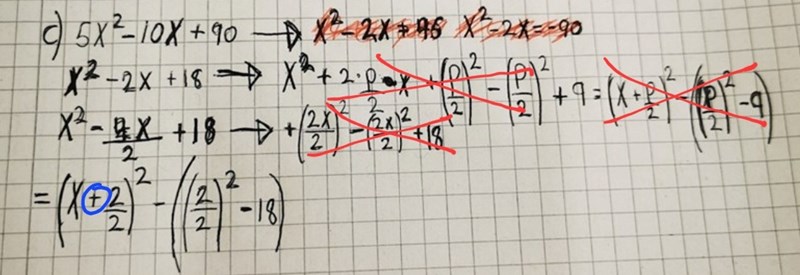 c) 5x²-10x+90 → x²-2x+98 x²-2x=-90
x²-2x+18 → x²+2·p/2·x+(p/2)²-(p/2)²+q=(x+p/2)²-((p/2)²-q)
x²-4x/2+18 → +(2x/2)²-(2x/2)²+18
=(x+2/2)²-((2/2)²-18)